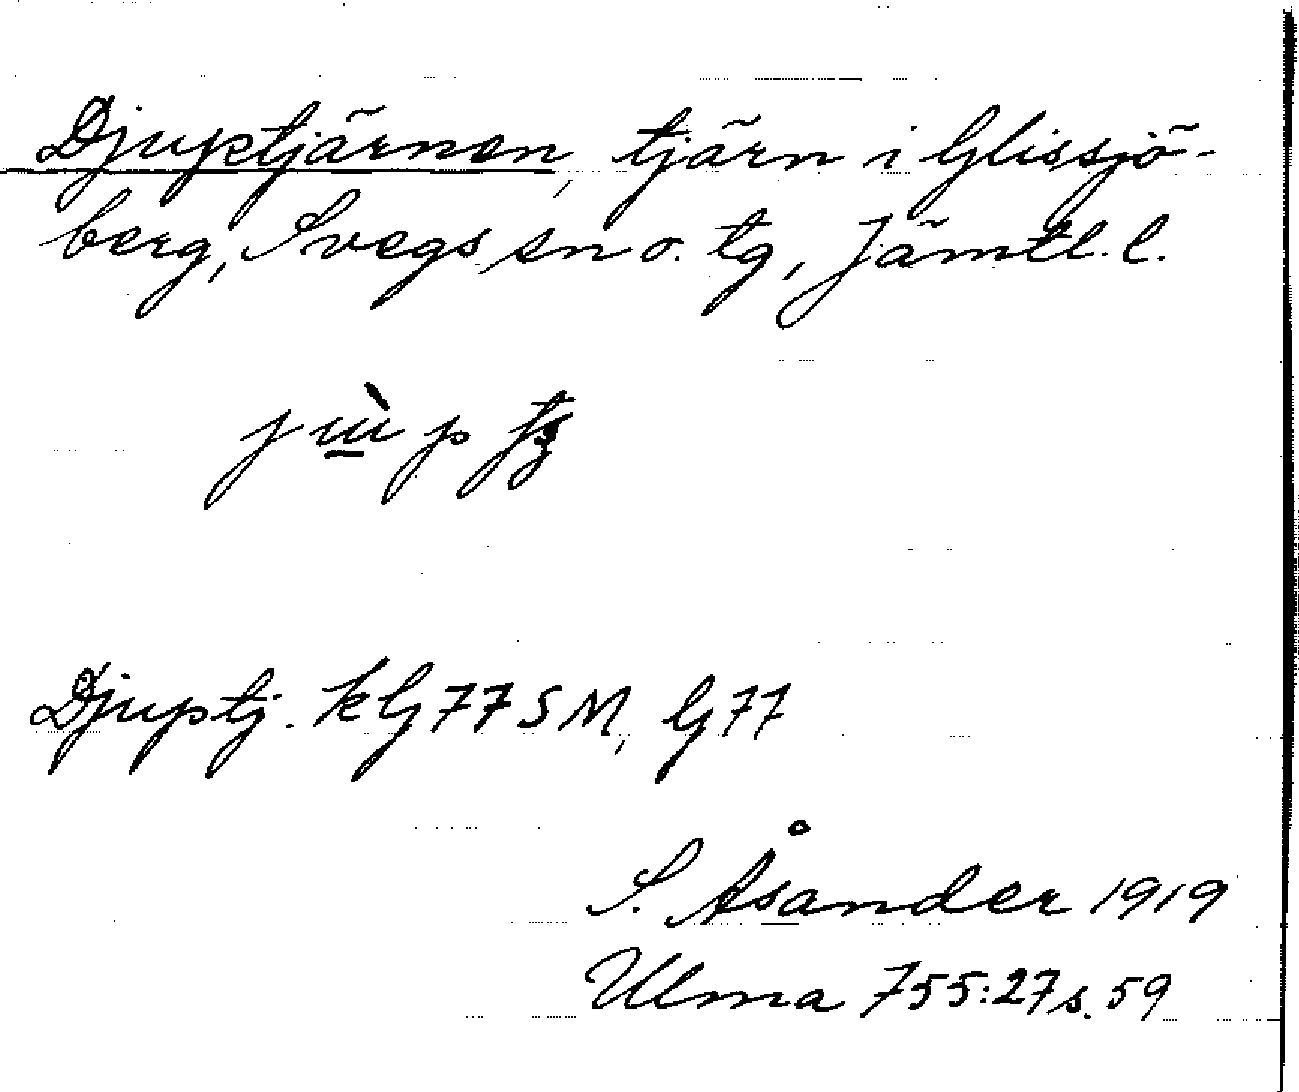 Djuptjärnen, tjärn i Glissjö-
berg, Svegs sn o. tg, Jämtl. l.
Djuptj. kG77SM, G77
S. Åsander 1919
Ulma 755:27 s. 59